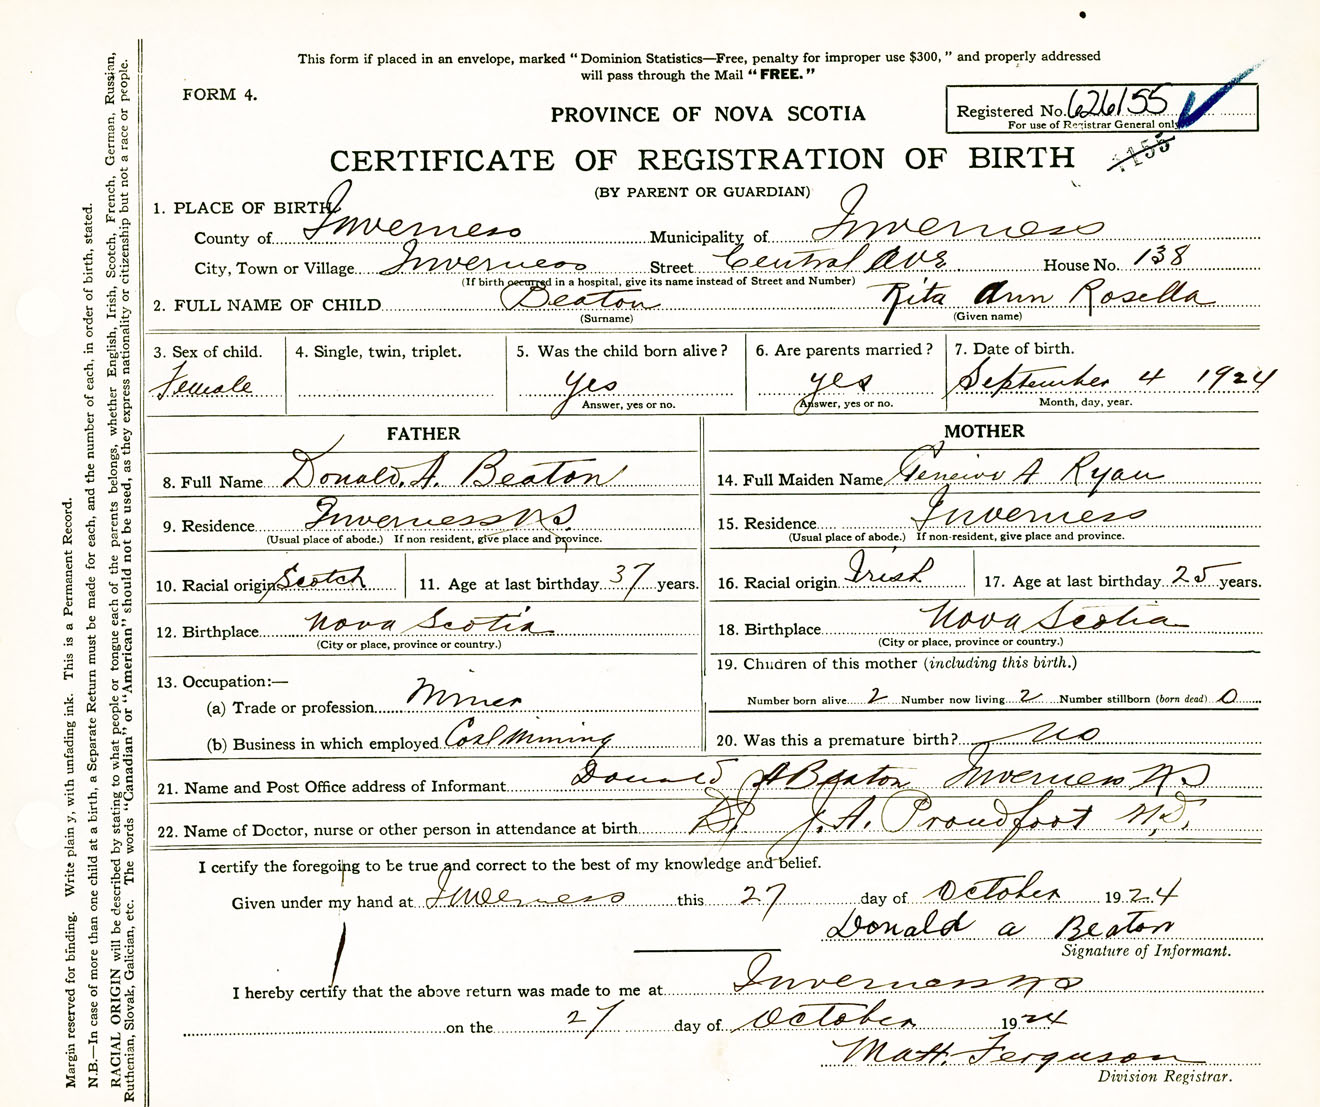 This form if placed in an envelope, marked “ Dominion Statistics—Free, penalty for improper use $300, ” and properly addressed
will pass through the Mail “ FREE. ”
FORM 4.
PROVINCE OF NOVA SCOTIA
Registered No. 626155
For use of Registrar General only
CERTIFICATE OF REGISTRATION OF BIRTH
155
(BY PARENT OR GUARDIAN)
1. PLACE OF BIRTH
County of Inverness Municipality of Inverness
City, Town or Village Inverness Street Central Ave. House No. 138
(If birth occurred in a hospital, give its name instead of Street and Number)
2. FULL NAME OF CHILD Beaton Rita Ann Rosella
(Surname) (Given name)
3. Sex of child. 4. Single, twin, triplet. 5. Was the child born alive? 6. Are parents married? 7. Date of birth.
Female yes yes September 4 1924
Answer, yes or no. Answer, yes or no. Month, day, year.
FATHER MOTHER
8. Full Name Donald. A. Beaton 14. Full Maiden Name A Ryan
9. Residence Inverness N.S. 15. Residence Inverness
(Usual place of abode.) If non resident, give place and province. (Usual place of abode.) If non-resident, give place and province.
10. Racial origin Scotch 11. Age at last birthday 37 years. 16. Racial origin Irish 17. Age at last birthday 25 years.
12. Birthplace Nova Scotia 18. Birthplace Nova Scotia
(City or place, province or country.) (City or place, province or country.)
13. Occupation:— 19. Children of this mother (including this birth.)
(a) Trade or profession Miner Number born alive 2 Number now living 2 Number stillborn (born dead) 0
(b) Business in which employed Coal Mining 20. Was this a premature birth? No
21. Name and Post Office address of Informant Donald A Beaton Inverness N S
22. Name of Doctor, nurse or other person in attendance at birth Dr. J. A. Proudfoot M.D.
I certify the foregoing to be true and correct to the best of my knowledge and belief.
Given under my hand at Inverness this 27 day of October 1924
Donald a Beaton
Signature of Informant.
I hereby certify that the above return was made to me at Inverness N S
on the 27 day of October 1924
Matt. Ferguson
Division Registrar.
Margin reserved for binding. Write plain y, with unfading ink. This is a Permanent Record.
N.B.—In case of more than one child at a birth, a Separate Return must be made for each, and the number of each, in order of birth, stated.
RACIAL ORIGIN will be described by stating to what people or tongue each of the parents belongs, whether English, Irish, Scotch, French, German, Russian,
Ruthenian, Slovak, Galician, etc. The words “Canadian” or “American” should not be used, as they express nationality or citizenship but not a race or people.